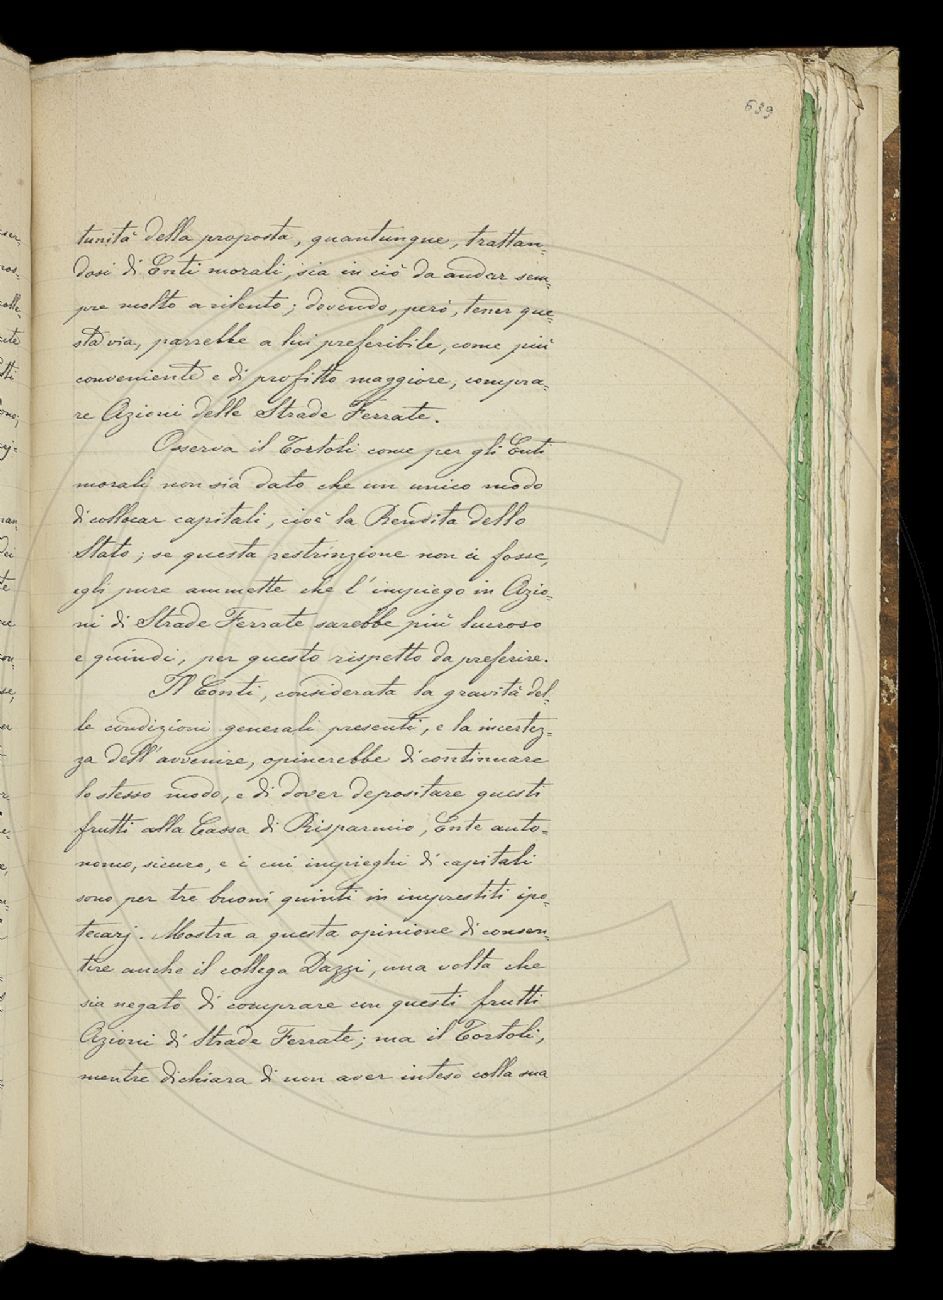 639
tunità della proposta, quantunque, trattan-
dosi di Enti morali, sia in ciò da andar sem-
pre molto a rilento; dovendo, però, tener que-
sta via, parrebbe a lui preferibile, come più
conveniente e di profitto maggiore, compra-
re Azioni delle Strade Ferrate.
Osserva il Tortoli come per gli Enti
morali non sia dato che un unico modo
di collocar capitali, cioè la Rendita dello
Stato; se questa restrinzione non ci fosse,
egli pure ammette che l'impiego in Azio-
ni di Strade Ferrate sarebbe più lucroso
e quindi, per questo rispetto da preferire.
Il Conti, considerata la gravità del-
le condizioni generali presenti, e la incertez-
za dell'avvenire, opinerebbe di continuare
lo stesso modo, e di dover depositare questi
frutti alla Cassa di Risparmio, Ente auto-
nomo, sicuro, e i cui impieghi di capitali
sono per tre buoni quinti in imprestiti ipo-
tecarj. Mostra a questa opinione di consen-
tire anche il collega Dazzi, una volta che
sia negato di comprare con questi frutti
Azioni di Strade Ferrate; ma il Tortoli,
mentre dichiara di non aver inteso colla sua